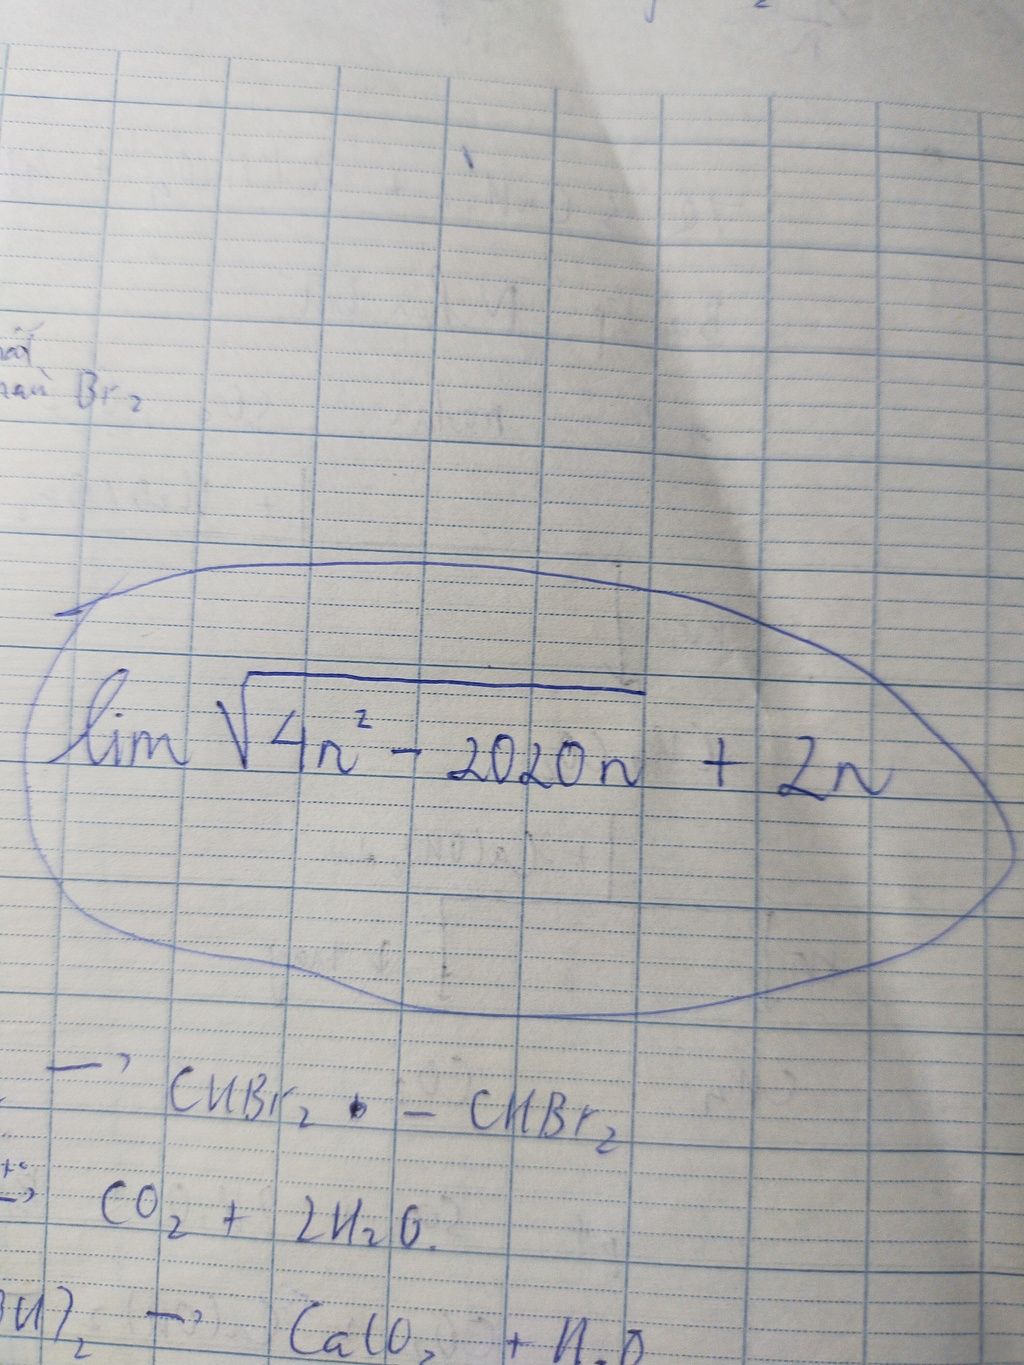 Br₂
lim √(4n² - 2020n) + 2n
→ CHBr₂ - CHBr₂
t° → CO₂ + 2H₂O.
→ CaCO₃ + H₂O